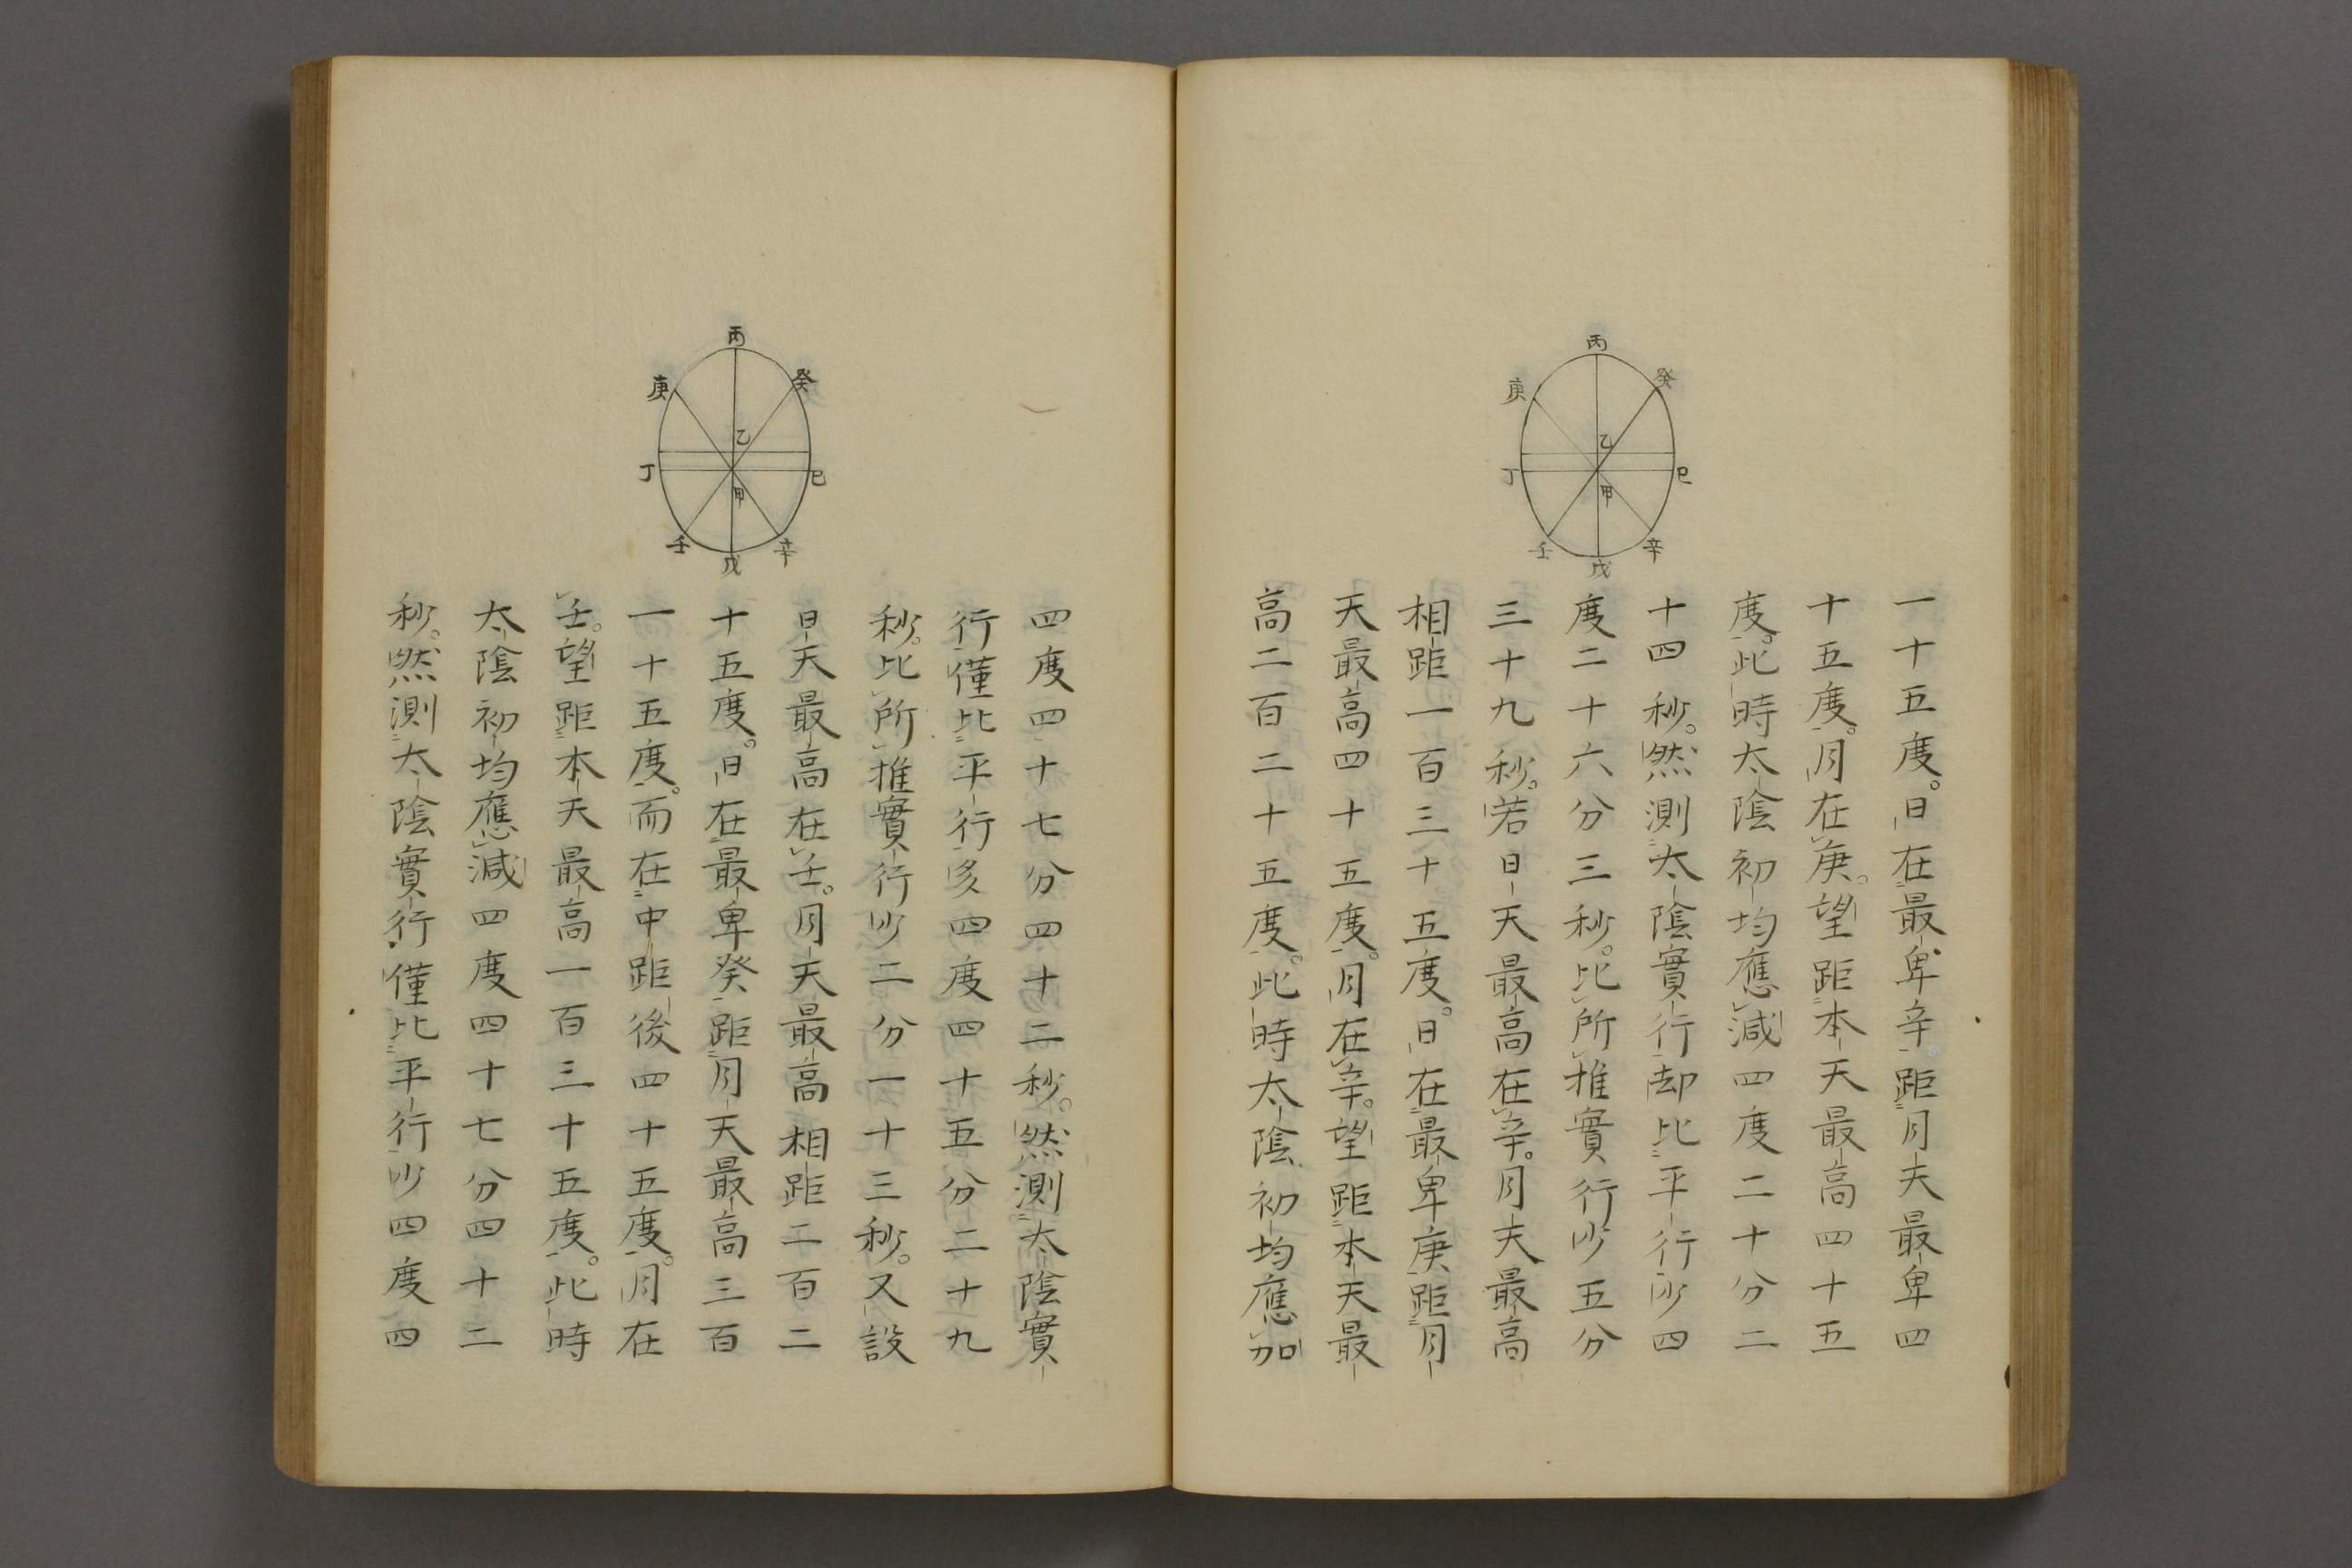 丙
癸
庚
乙
丁
巳
甲
壬
辛
戊
一十五度。日在最卑辛。距月天最卑四
十五度。月在庚。望距本天最高四十五
度。此時太陰初均應減四度二十分二
十四秒。然測太陰實行却比平行少四
度二十六分三秒。比所推實行少五分
三十九秒。若日天最高在辛。月天最高
相距一百三十五度。日在最卑庚距月
天最高四十五度。月在辛。望距本天最
高二百二十五度。此時太陰初均應加
丙
癸
庚
乙
丁
巳
甲
壬
辛
戊
四度四十七分四十二秒。然測太陰實
行僅比平行多四度四十五分二十九
秒。比所推實行少二分一十三秒。又設
日天最高在壬。月天最高相距二百二
十五度。日在最卑癸距月天最高三百
一十五度。而在中距後四十五度。月在
壬。望距本天最高一百三十五度。此時
太陰初均應減四度四十七分四十二
秒。然測太陰實行僅比平行少四度四